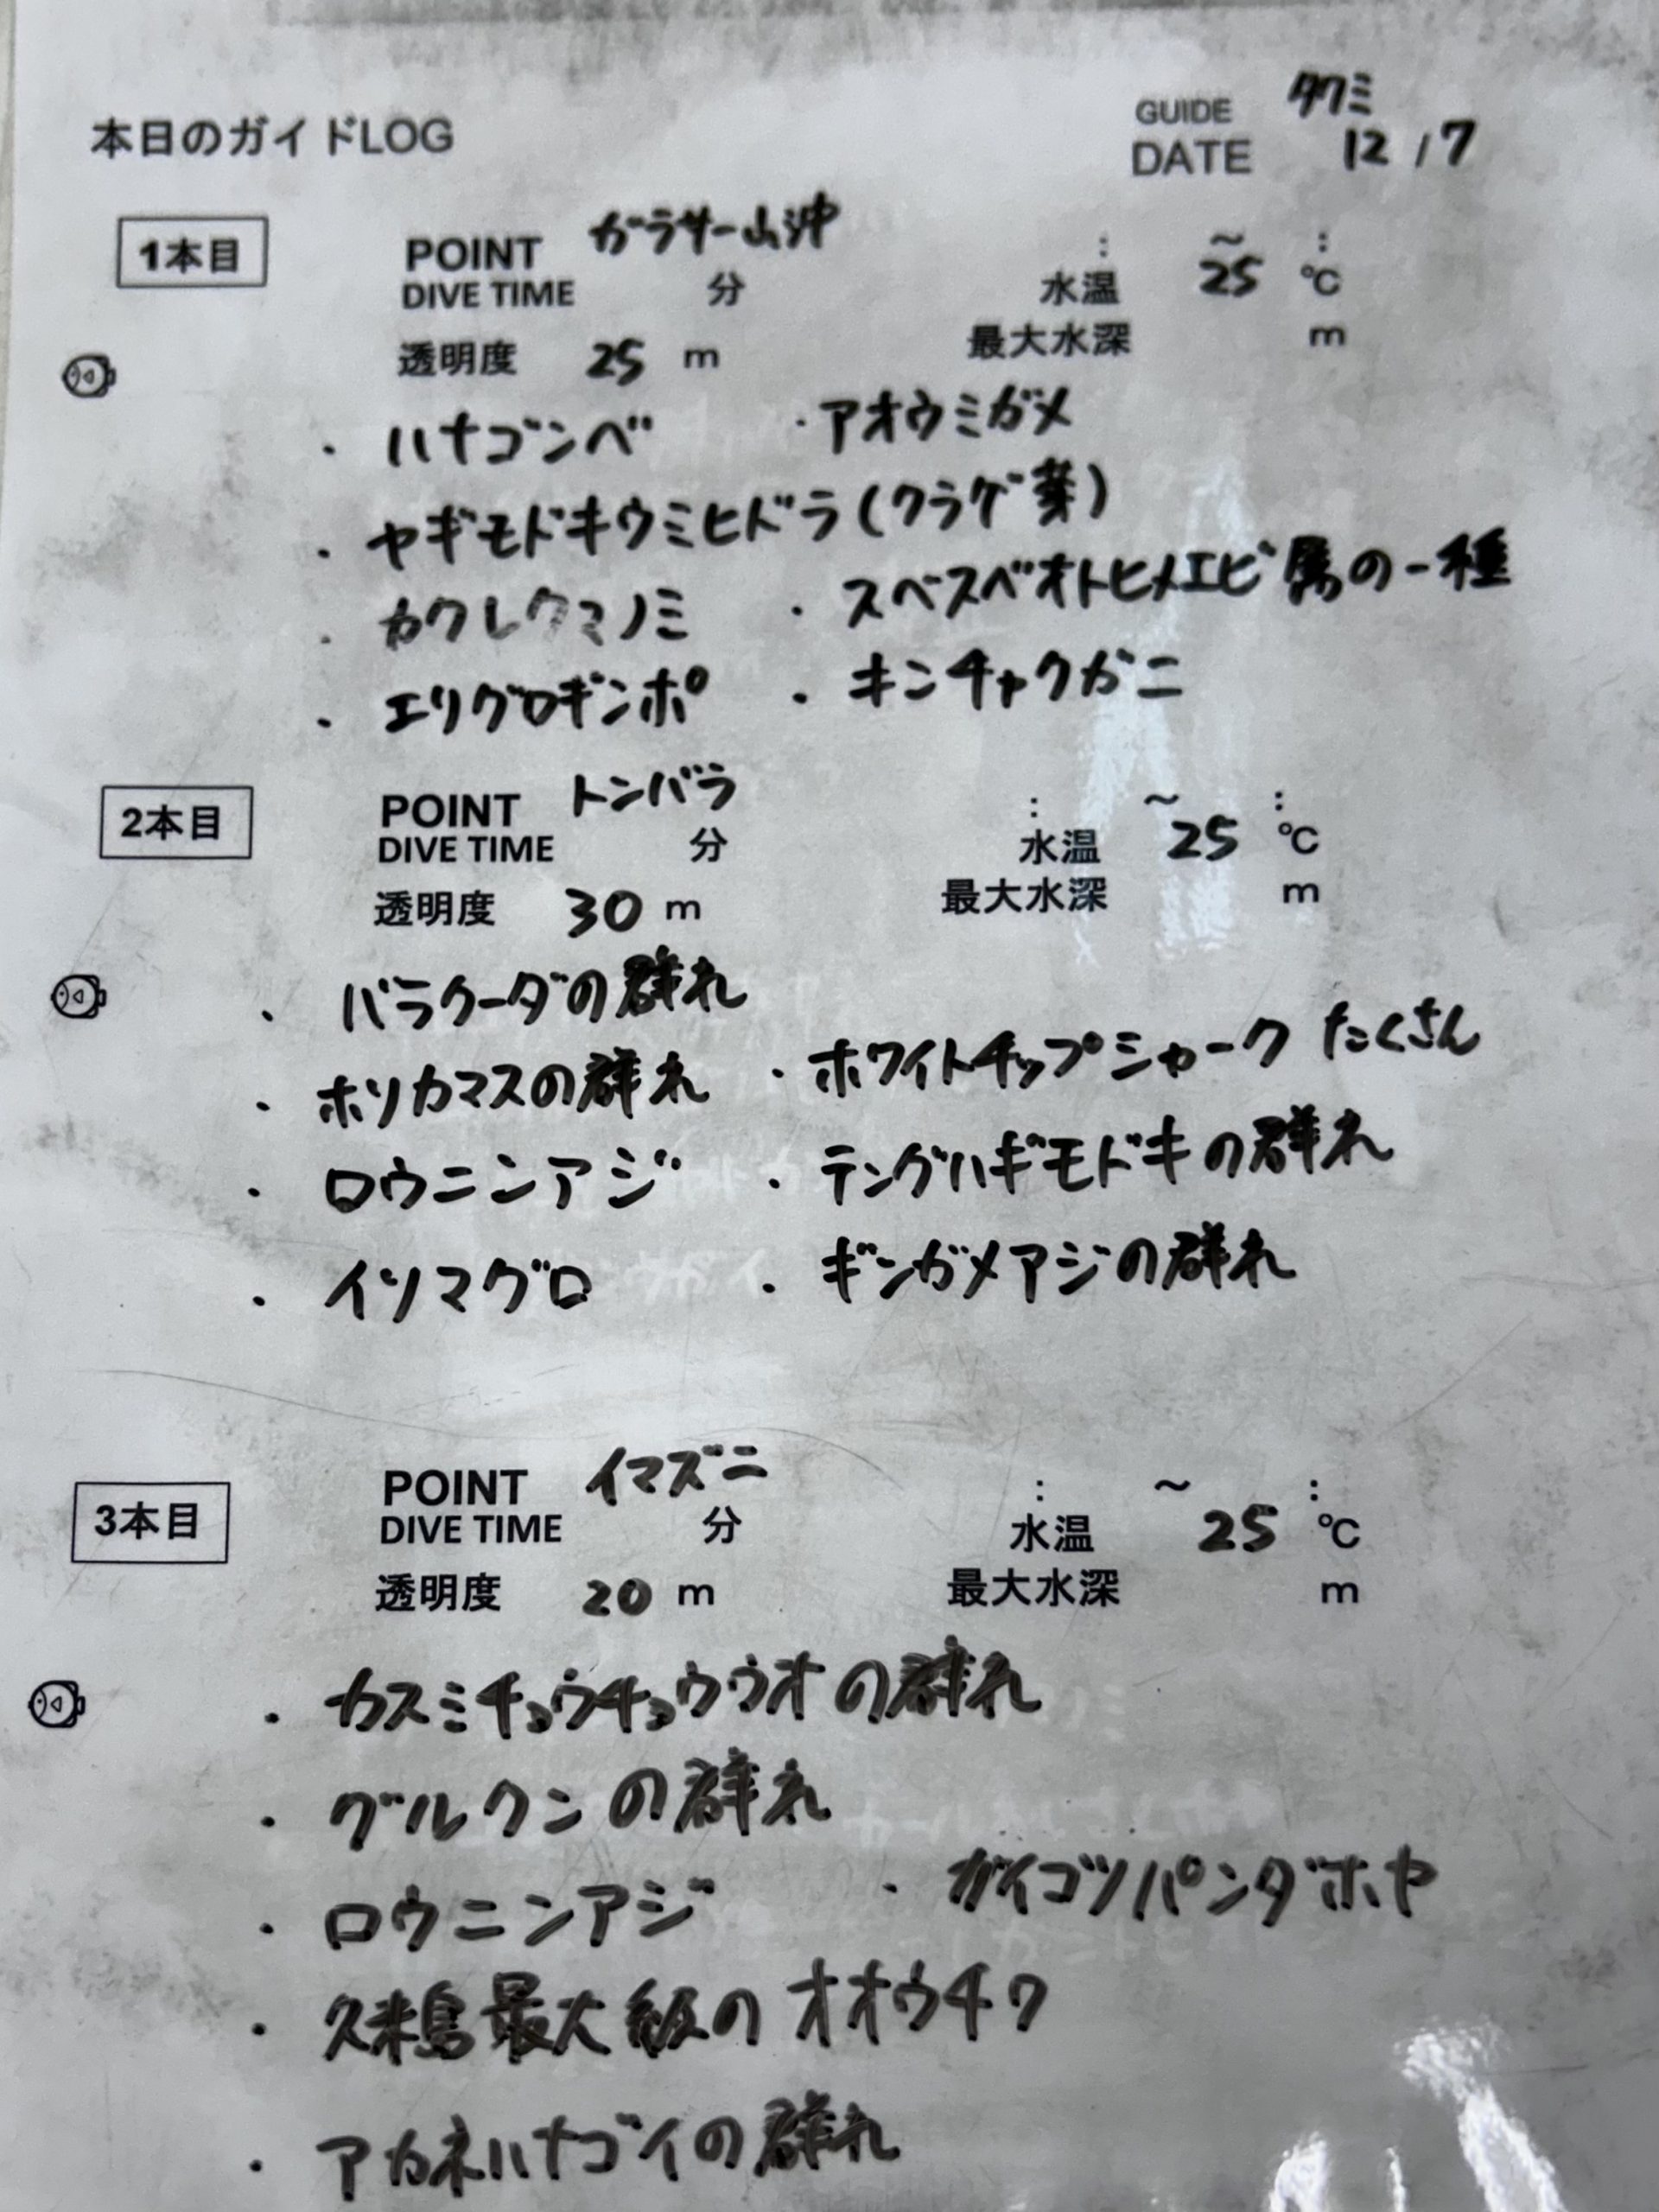 本日のガイドLOG
GUIDE タクミ
DATE 12 / 7
1本目
POINT ガラサー山沖 : ~ :
DIVE TIME 分 水温 25 ℃
透明度 25 m 最大水深 m
・ハナゴンベ ・アオウミガメ
・ヤギモドキウミヒドラ(クラゲ芽)
・カクレクマノミ ・スベスベオトヒメエビ属の一種
・エリグロギンポ ・キンチャクガニ
2本目
POINT トンバラ : ~ :
DIVE TIME 分 水温 25 ℃
透明度 30 m 最大水深 m
・バラクーダの群れ
・ホソカマスの群れ ・ホワイトチップシャーク たくさん
・ロウニンアジ ・テングハギモドキの群れ
・イソマグロ ・ギンガメアジの群れ
3本目
POINT イマズニ : ~ :
DIVE TIME 分 水温 25 ℃
透明度 20 m 最大水深 m
・カスミチョウチョウウオの群れ
・グルクンの群れ
・ロウニンアジ ・ガイコツパンダホヤ
・久米島最大級のオオウチワ
・アカネハナゴイの群れ